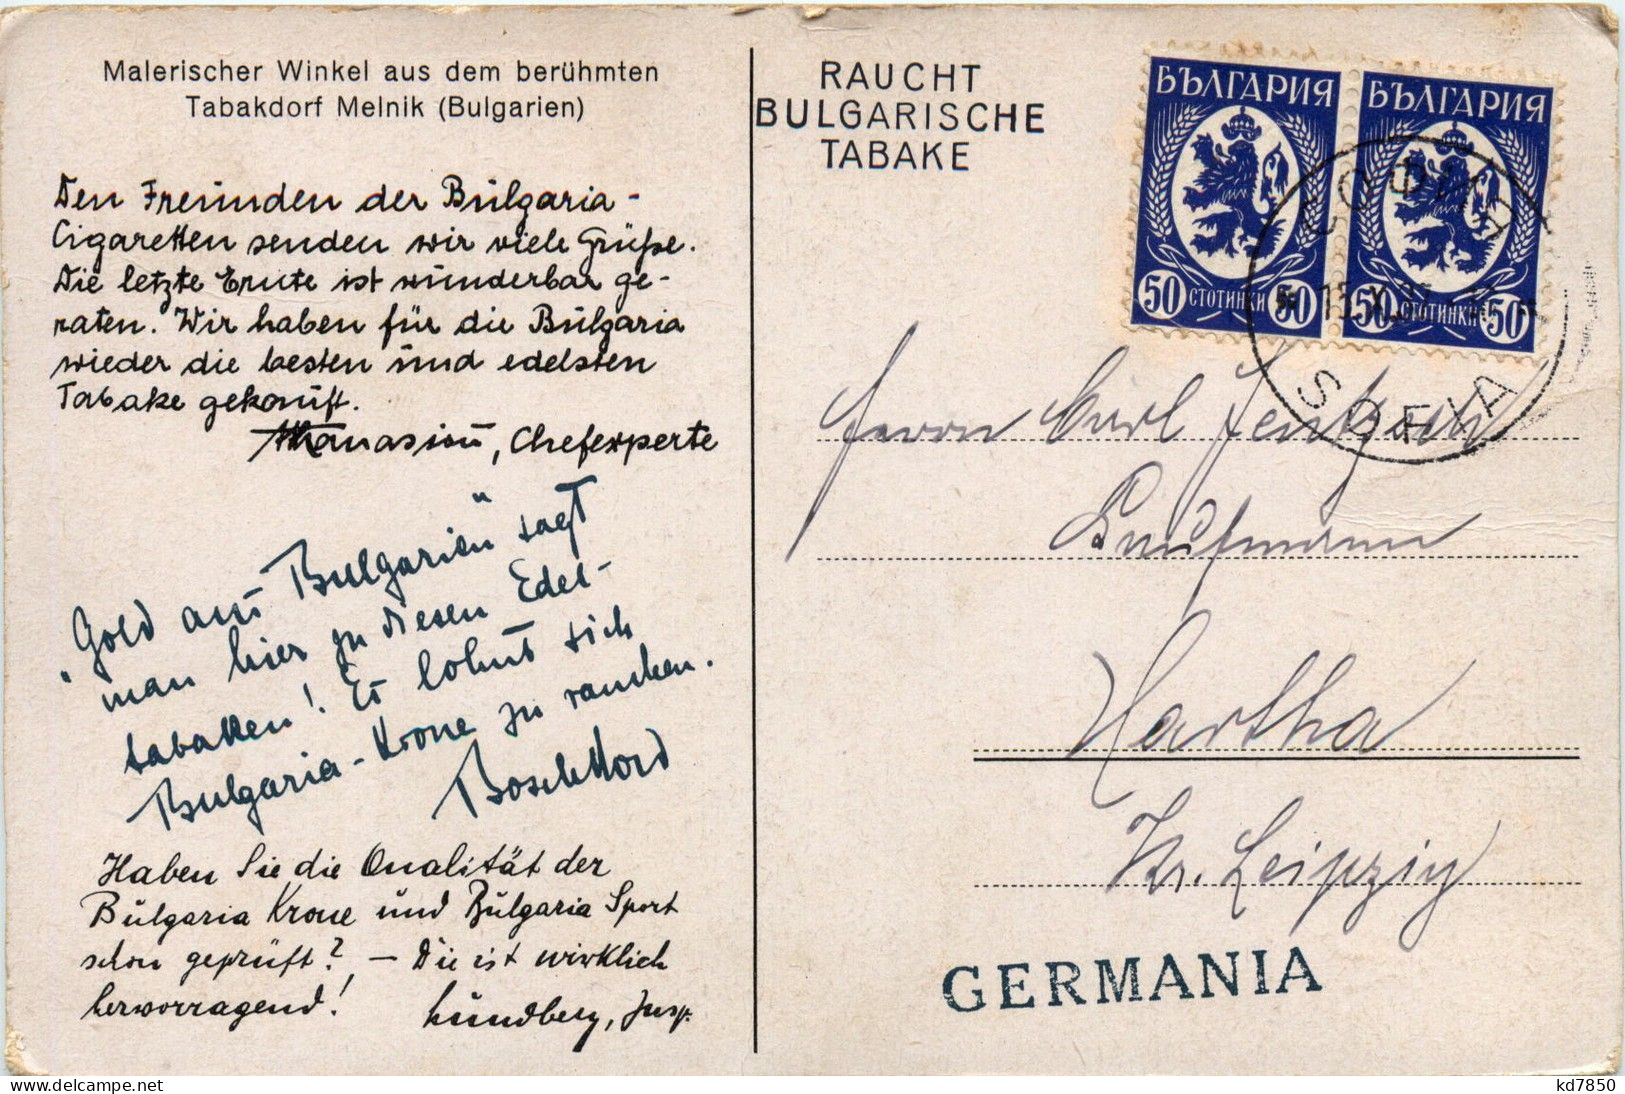 Malerischer Winkel aus dem berühmten
Tabakdorf Melnik (Bulgarien)
Den Freunden der Bulgaria-
Cigaretten senden wir viele Grüße.
Die letzte Ernte ist wunderbar ge-
raten. Wir haben für die Bulgaria
wieder die besten und edelsten
Tabake gekauft.
Athanasiou, Chefexperte
"Gold aus Bulgarien" sagt
man hier zu diesen Edel-
tabaken! Es lohnt sich
Bulgaria-Krone zu rauchen.
Haben Sie die Qualität der
Bulgaria Krone und Bulgaria Sport
schon geprüft? – Die ist wirklich
hervorragend!
Lundberg, Insp.
RAUCHT
BULGARISCHE
TABAKE
БЪЛГАРИЯ
50 СТОТИНКИ 50
БЪЛГАРИЯ
50 СТОТИНКИ 50
СОФИЯ
SOFIA
Herrn Carl
Kaufmann
Hartha
Kr. Leipzig
GERMANIA
kd7850